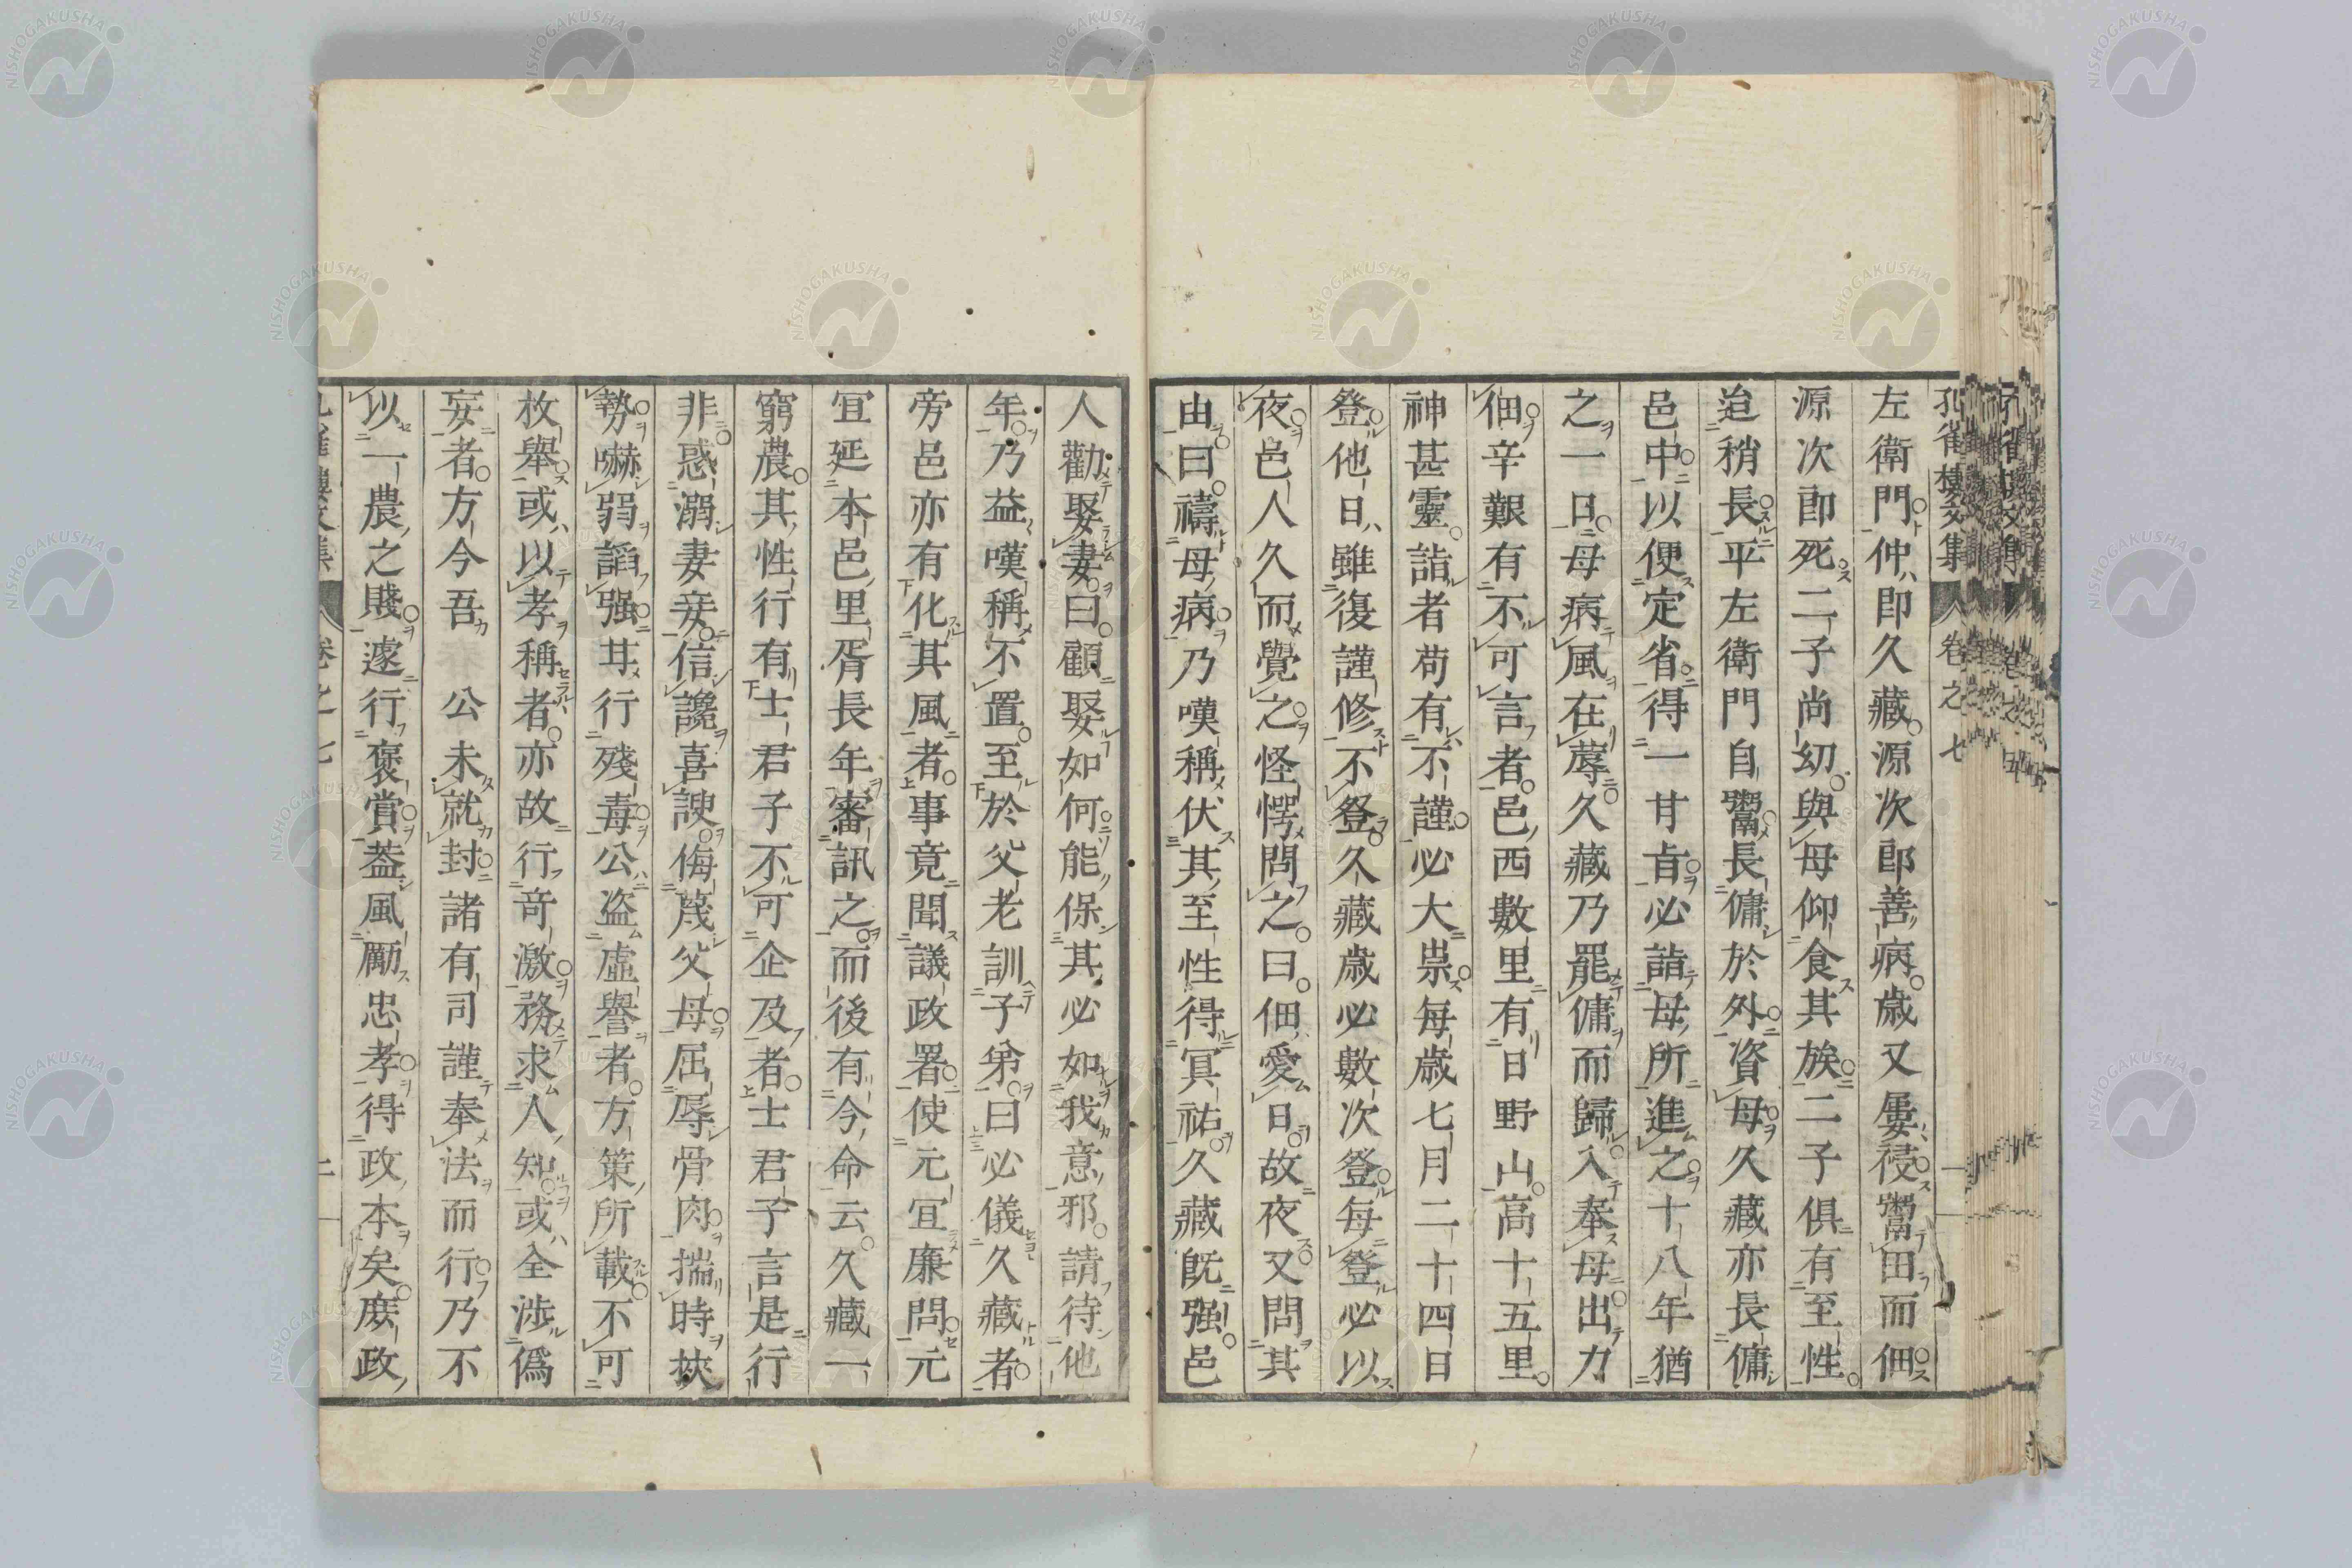 孔雀樓文集 卷之七
左衛門仲卽久藏源次郎善病歲又屢祲鬻田而佃
源次卽死二子尚幼與母仰食其族二子俱有至性
迨稍長平左衛門自鬻長傭於外資母久藏亦長傭
邑中以便定省得一甘㫖必詣母所進之十八年猶
之一日母病風在蓐久藏乃罷傭而歸入奉母出力
佃辛艱有不可言者邑西數里有日野山高十五里
神甚靈詣者苟有不謹必大祟每歲七月二十四日
登他日雖復謹修不登久藏歲必數次登每登必以
夜邑人久而覺之怪愕問之曰佃愛日故夜又問其
由曰禱母病乃嘆稱伏其至性得冥祐久藏旣强邑
人勸娶妻曰顧娶如何能保其必如我意邪請待他
年乃益嘆稱不置至於父老訓子弟曰必儀久藏者
旁邑亦有化其風者事竟聞議政署使元冝廉問元
冝延本邑里胥長年審訊之而後有今命云久藏一
窮農其性行有士君子不可企及者士君子言是行
非惑溺妻妾信讒喜諛侮蔑父母屈辱骨肉揣時挾
勢嚇弱謟强其行殘毒公盜虛譽者方策所載不可
枚舉或以孝稱者亦故行竒激務求人知或全涉僞
妄者方今吾 公未就封諸有司謹奉法而行乃不
以一農之賤遽行褒賞葢風勵忠孝得政本矣庻政